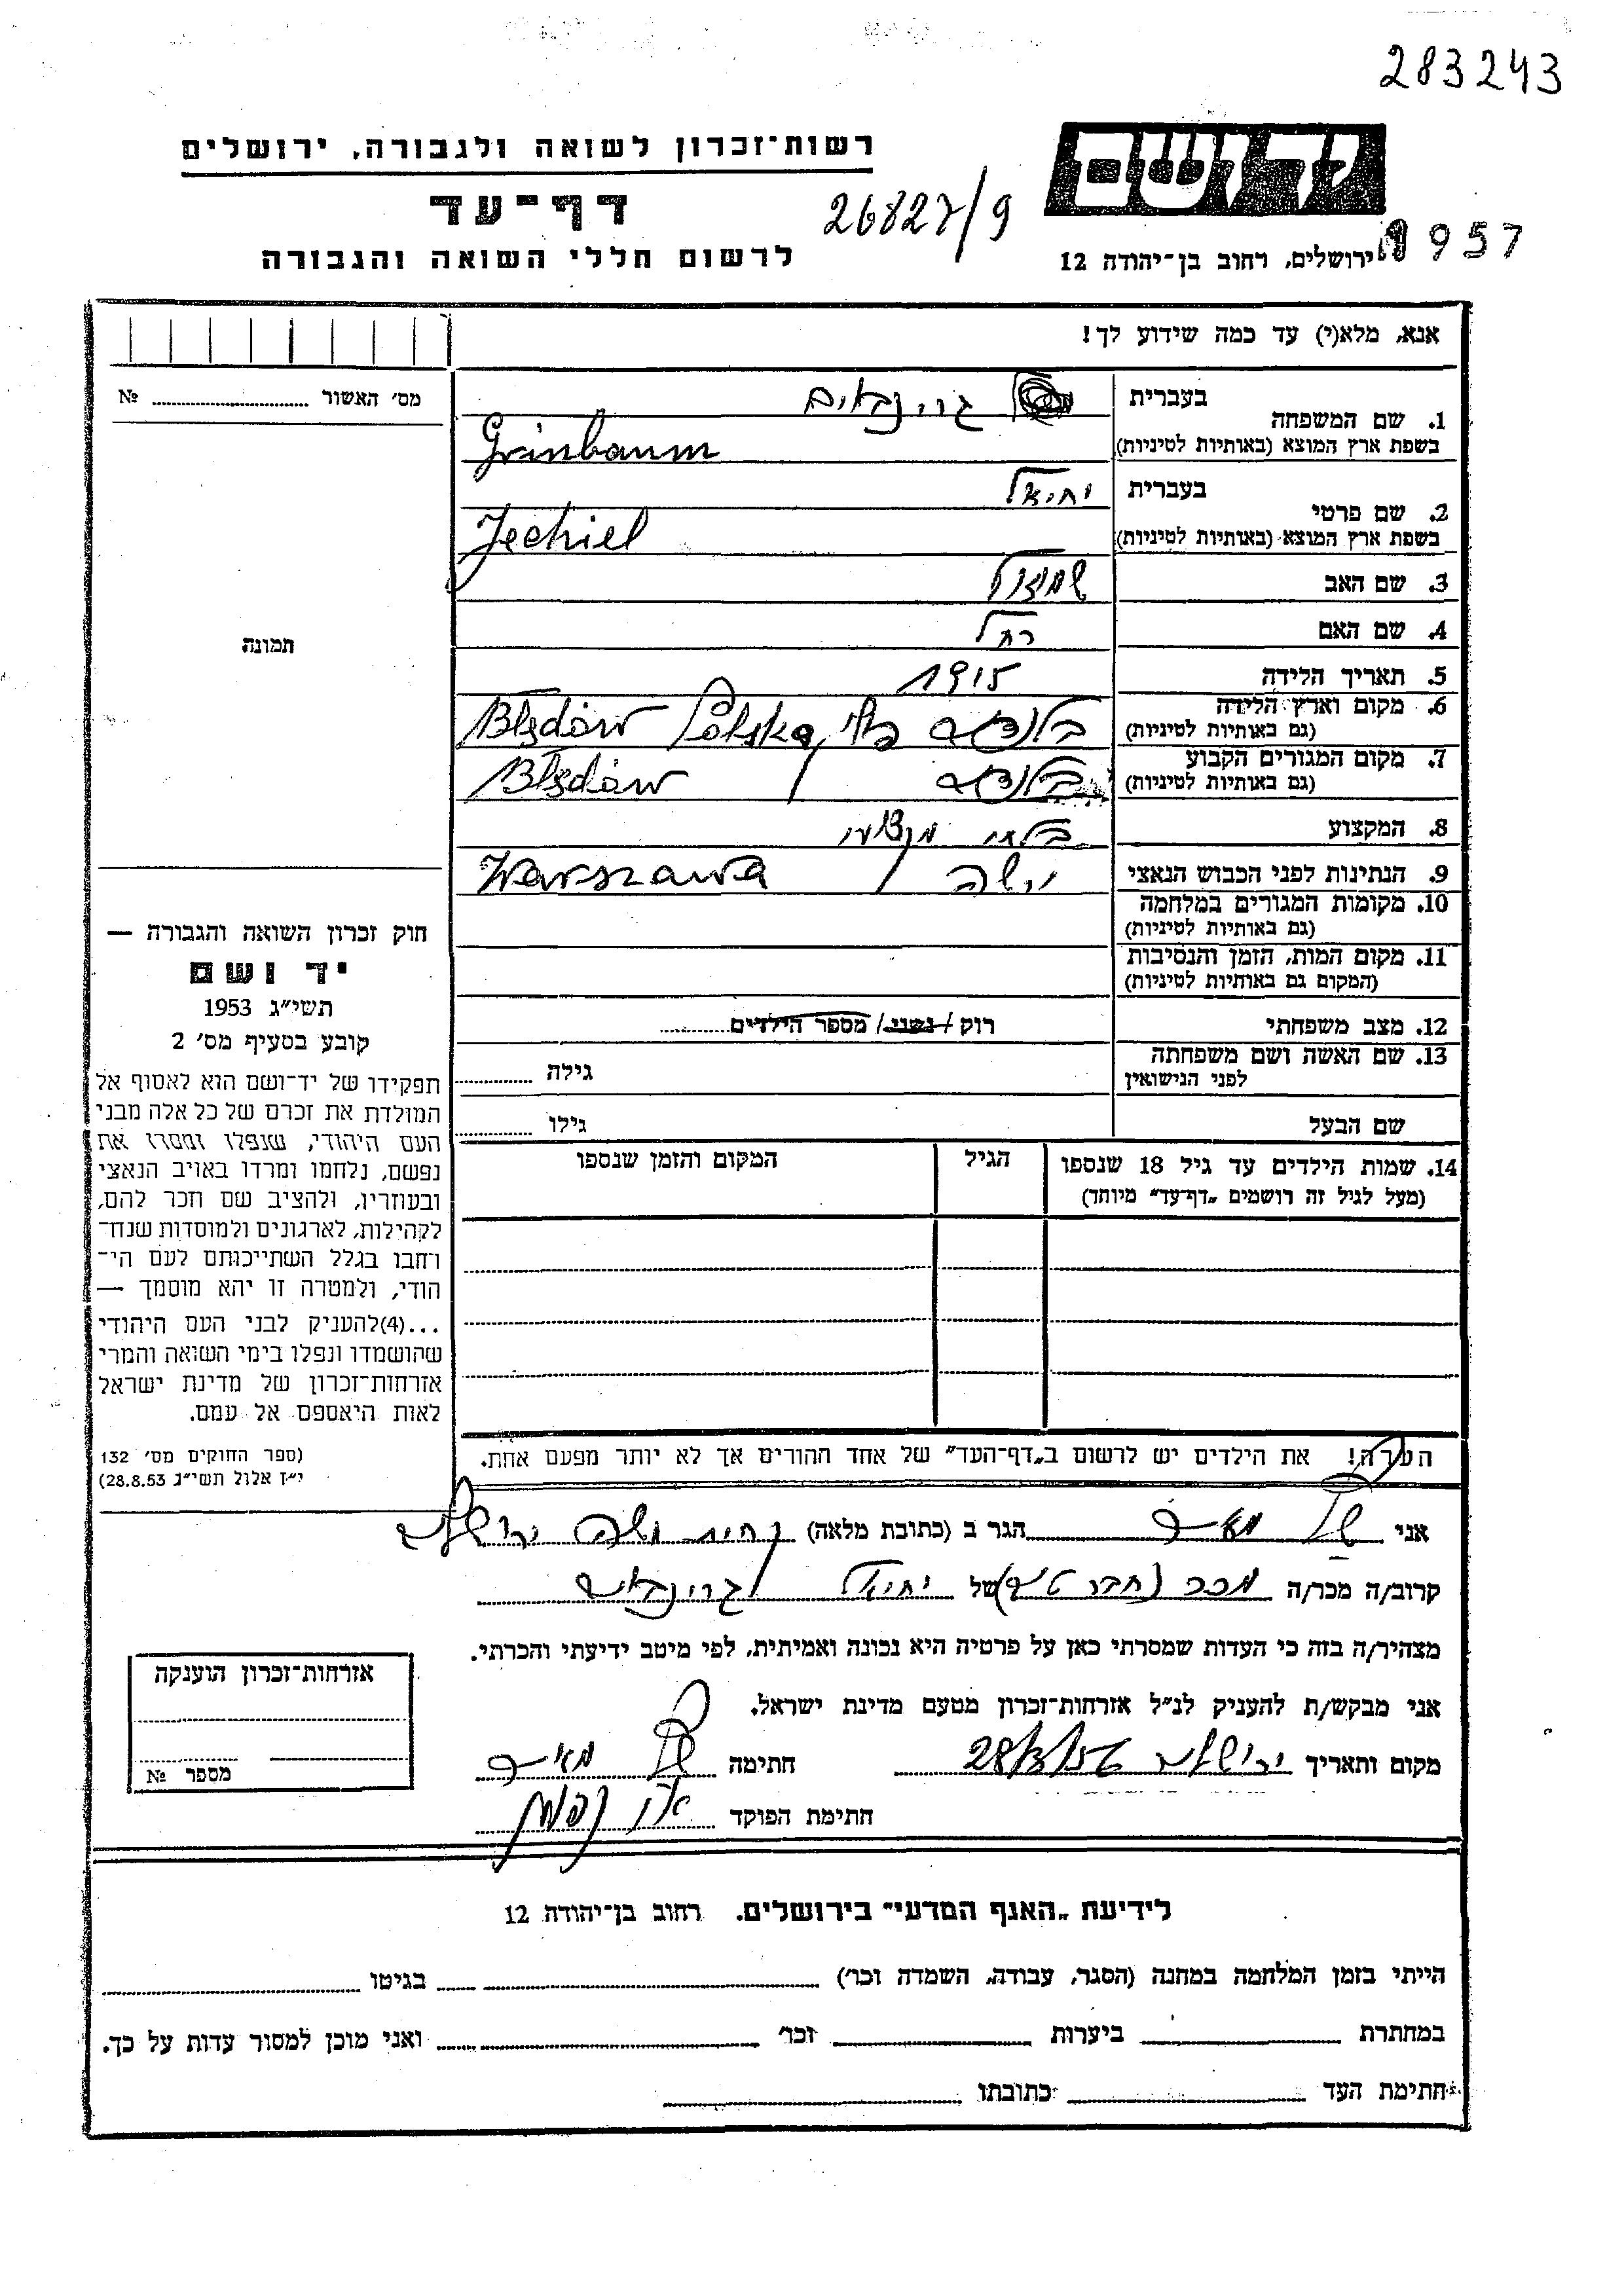 283243
רשות־זכרון לשואה ולגבורה, ירושלים
יד ושם
דף־עד
26827/9
לרשום חללי השואה והגבורה
ירושלים, רחוב בן־יהודה 12
957
אנא, מלא(י) עד כמה שידוע לך!
מס׳ האשור № ........
1. שם המשפחה
בעברית גרינבאום
בשפת ארץ המוצא (באותיות לטיניות) Grinbaum
2. שם פרטי
בעברית יחיאל
בשפת ארץ המוצא (באותיות לטיניות) Jechiel
3. שם האב שמואל
4. שם האם רחל
5. תאריך הלידה 1915
6. מקום וארץ הלידה Błędów Polska,
(גם באותיות לטיניות)
7. מקום המגורים הקבוע Błędów
(גם באותיות לטיניות)
8. המקצוע בלתי מקצועי
9. הנתינות לפני הכבוש הנאצי Warszawa
10. מקומות המגורים במלחמה
(גם באותיות לטיניות)
11. מקום המות, הזמן והנסיבות
(המקום גם באותיות לטיניות)
12. מצב משפחתי רוק / נשוי / מספר הילדים........
13. שם האשה ושם משפחתה
לפני הנישואין
גילה ........
שם הבעל גילו ........
14. שמות הילדים עד גיל 18 שנספו
(מעל לגיל זה רושמים „דף־עד״ מיוחד)
הגיל
המקום והזמן שנספו
הערה! את הילדים יש לרשום ב„דף־העד״ של אחד ההורים אך לא יותר מפעם אחת.
תמונה
חוק זכרון השואה והגבורה —
יד ושם
תשי״ג 1953
קובע בסעיף מס׳ 2
תפקידו של יד־ושם הוא לאסוף אל
המולדת את זכרם של כל אלה מבני
העם היהודי, שנפלו ומסרו את
נפשם, נלחמו ומרדו באויב הנאצי
ובעוזריו, ולהציב שם וזכר להם,
לקהילות, לארגונים ולמוסדות שנח־
רחבו בגלל השתייכותם לעם הי־
הודי, ולמטרה זו יהא מוסמך —
...(4)להעניק לבני העם היהודי
שהושמדו ונפלו בימי השואה והמרי
אזרחות־זכרון של מדינת ישראל
לאות היאספם אל עמם.
(ספר החוקים מס׳ 132
י״ז אלול תשי״ג 28.8.53)
אני הגר ב (כתובת מלאה) ירושלים
קרוב/ה מכר/ה מכר של יחיאל גרינבאום
מצהיר/ה בזה כי העדות שמסרתי כאן על פרטיה היא נכונה ואמיתית, לפי מיטב ידיעתי והכרתי.
אני מבקש/ת להעניק לנ״ל אזרחות־זכרון מטעם מדינת ישראל.
מקום ותאריך ירושלים 28/3/56 חתימה
חתימת הפוקד
אזרחות־זכרון הוענקה
מספר №
לידיעת „האגף המדעי״ בירושלים. רחוב בן־יהודה 12
הייתי בזמן המלחמה במחנה (הסגר, עבודה, השמדה וכו׳) ........ בגיטו ........
במחתרת ........ ביערות ........ וכו׳ ........ ואני מוכן למסור עדות על כך.
חתימת העד ........ כתובתו ........